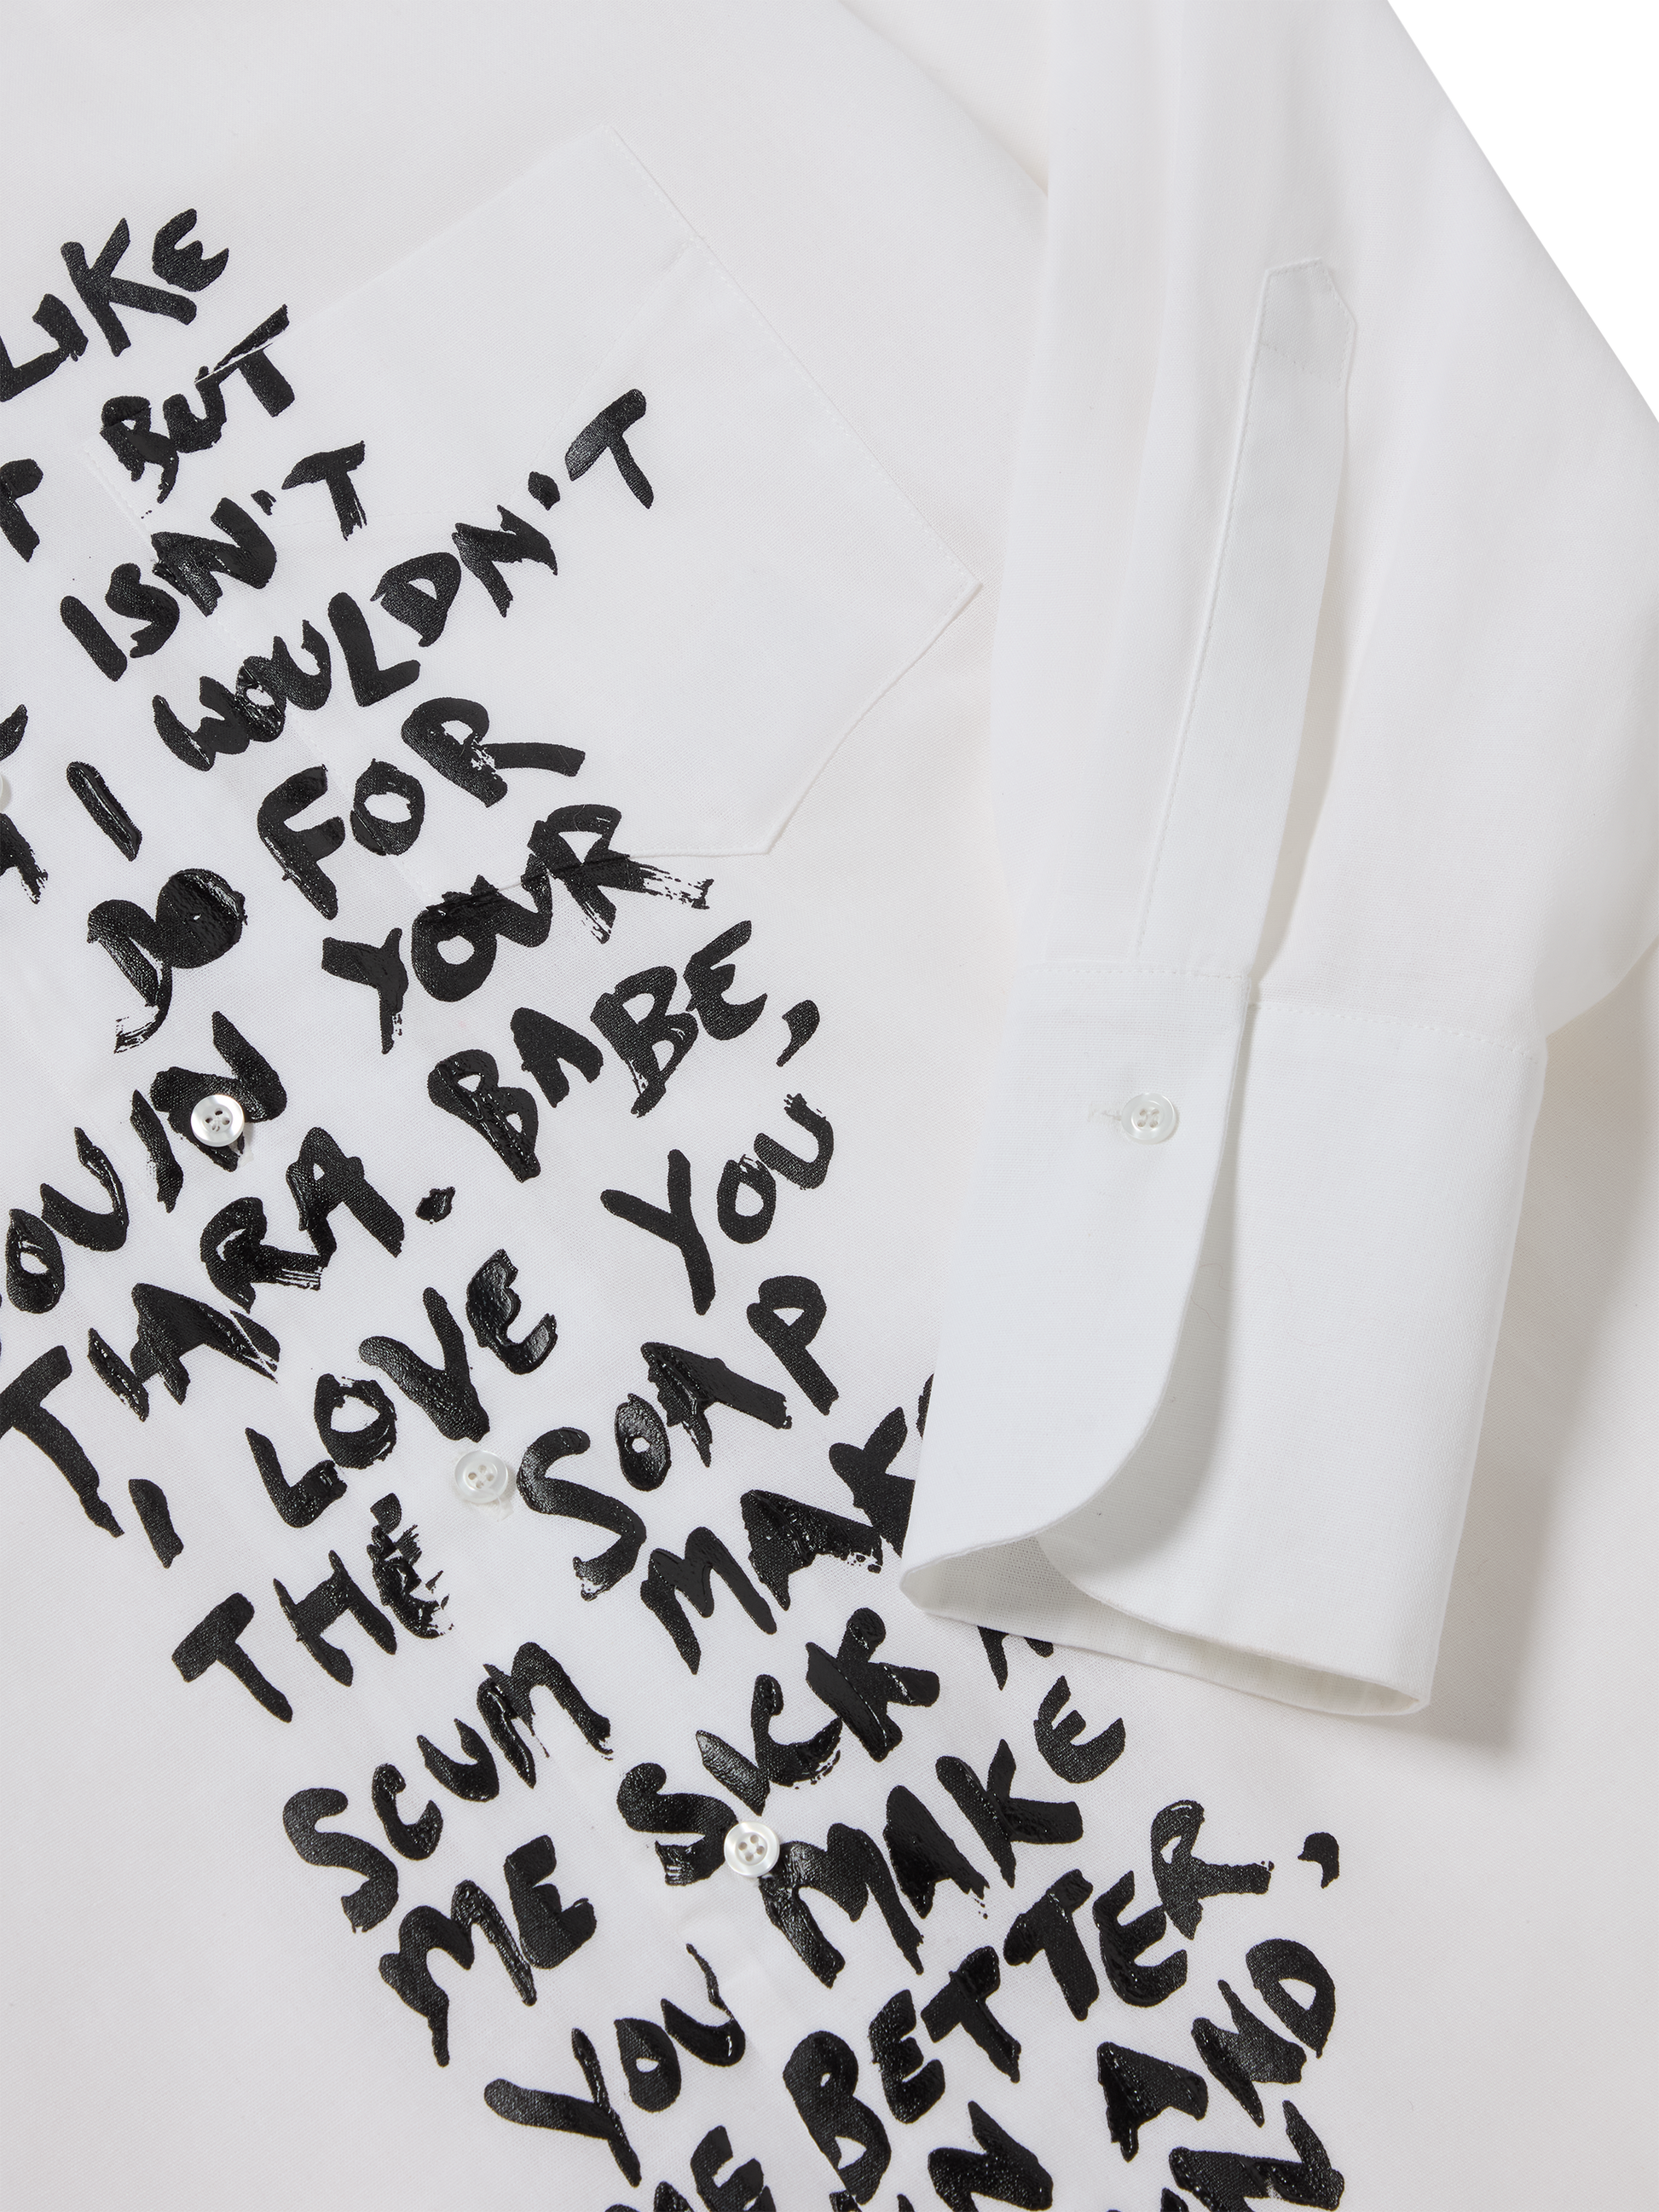 LIKE
BUT
ISN'T
I WOULDN'T
DO FOR
YOUR
THARA. BABE,
I LOVE YOU
THE SOAP
SCUM MAK
ME SICK
YOU MAKE
ME BETTER,
AND